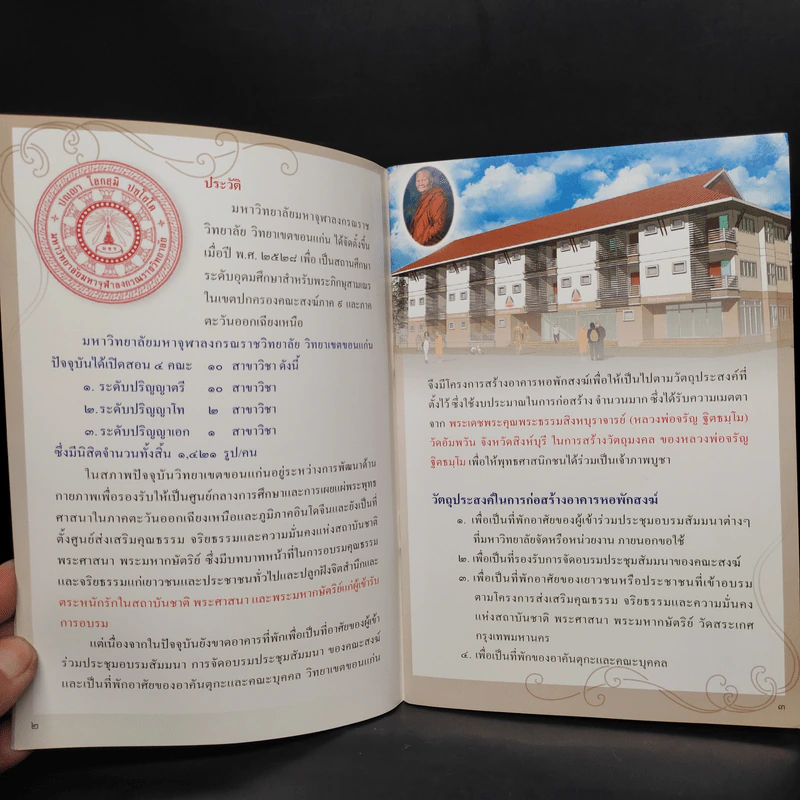 ปญฺญา โลกสฺมิ ปชฺโชโต
มหาวิทยาลัยมหาจุฬาลงกรณราชวิทยาลัย
ประวัติ
มหาวิทยาลัยมหาจุฬาลงกรณราช
วิทยาลัย วิทยาเขตขอนแก่น ได้จัดตั้งขึ้น
เมื่อปี พ.ศ. ๒๕๒๘ เพื่อ เป็นสถานศึกษา
ระดับอุดมศึกษาสำหรับพระภิกษุสามเณร
ในเขตปกครองคณะสงฆ์ภาค ๙ และภาค
ตะวันออกเฉียงเหนือ
มหาวิทยาลัยมหาจุฬาลงกรณราชวิทยาลัย วิทยาเขตขอนแก่น
ปัจจุบันได้เปิดสอน ๔ คณะ ๑๐ สาขาวิชา ดังนี้
๑. ระดับปริญญาตรี ๑๐ สาขาวิชา
๒. ระดับปริญญาโท ๒ สาขาวิชา
๓. ระดับปริญญาเอก ๑ สาขาวิชา
ซึ่งมีนิสิตจำนวนทั้งสิ้น ๑,๔๒๑ รูป/คน
ในสภาพปัจจุบันวิทยาเขตขอนแก่นอยู่ระหว่างการพัฒนาด้าน
กายภาพเพื่อรองรับให้เป็นศูนย์กลางการศึกษาและการเผยแผ่พระพุทธ
ศาสนาในภาคตะวันออกเฉียงเหนือและภูมิภาคอินโดจีนและยังเป็นที่
ตั้งศูนย์ส่งเสริมคุณธรรม จริยธรรมและความมั่นคงแห่งสถาบันชาติ
พระศาสนา พระมหากษัตริย์ ซึ่งมีบทบาทหน้าที่ในการอบรมคุณธรรม
และจริยธรรมแก่เยาวชนและประชาชนทั่วไปและปลูกฝังจิตสำนึกและ
ตระหนักรักในสถาบันชาติ พระศาสนา และพระมหากษัตริย์แก่ผู้เข้ารับ
การอบรม
แต่เนื่องจากในปัจจุบันยังขาดอาคารที่พักเพื่อเป็นที่อาศัยของผู้เข้า
ร่วมประชุมอบรมสัมมนา การจัดอบรมประชุมสัมมนา ของคณะสงฆ์
และเป็นที่พักอาศัยของอาคันตุกะและคณะบุคคล วิทยาเขตขอนแก่น
๒
จึงมีโครงการสร้างอาคารหอพักสงฆ์เพื่อให้เป็นไปตามวัตถุประสงค์ที่
ตั้งไว้ ซึ่งใช้งบประมาณในการก่อสร้าง จำนวนมาก ซึ่งได้รับความเมตตา
จาก พระเดชพระคุณพระธรรมสิงหบุราจารย์ (หลวงพ่อจรัญ ฐิตธมฺโม)
วัดอัมพวัน จังหวัดสิงห์บุรี ในการสร้างวัตถุมงคล ของหลวงพ่อจรัญ
ฐิตธมฺโม เพื่อให้พุทธศาสนิกชนได้ร่วมเป็นเจ้าภาพบูชา
วัตถุประสงค์ในการก่อสร้างอาคารหอพักสงฆ์
๑. เพื่อเป็นที่พักอาศัยของผู้เข้าร่วมประชุมอบรมสัมมนาต่างๆ
ที่มหาวิทยาลัยจัดหรือหน่วยงาน ภายนอกขอใช้
๒. เพื่อเป็นที่รองรับการจัดอบรมประชุมสัมมนาของคณะสงฆ์
๓. เพื่อเป็นที่พักอาศัยของเยาวชนหรือประชาชนที่เข้าอบรม
ตามโครงการส่งเสริมคุณธรรม จริยธรรมและความมั่นคง
แห่งสถาบันชาติ พระศาสนา พระมหากษัตริย์ วัดสระเกศ
กรุงเทพมหานคร
๔. เพื่อเป็นที่พักของอาคันตุกะและคณะบุคคล
๓